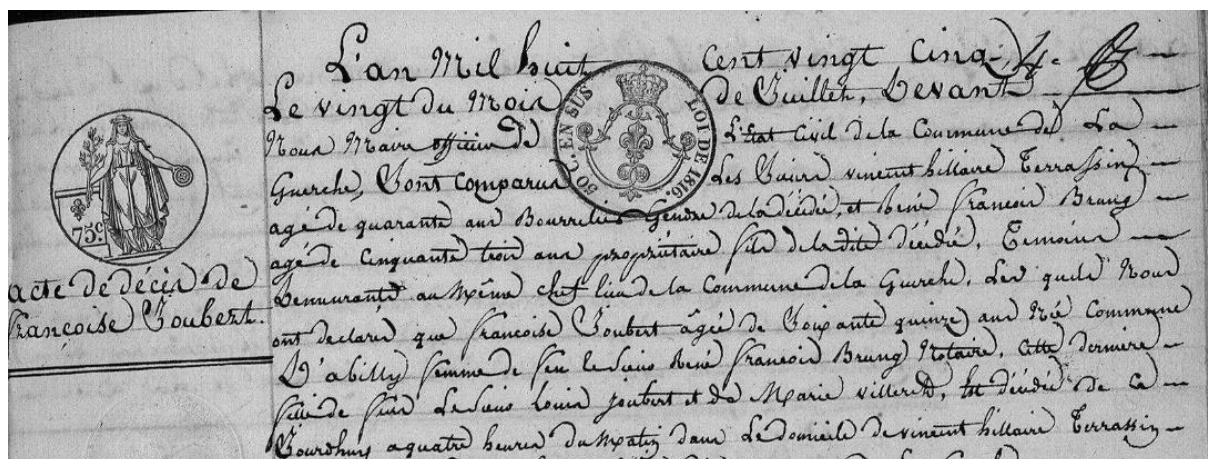 L'an Mil huit cent vingt cinq
Le vingt du Mois de Juillet, Devant
Nous Maire officier de L'Etat Civil de la Commune de La
Guerche, Sont Comparus Les Sieurs vincent hillaire Terrassin
agé de quarante ans Bourrelier Gendre de la décédée, et René françois Brung
agé de Cinquante trois ans propriétaire fils de la dite décédée, Temoins
Demeurants au Même chef lieu de la Commune de la Guerche, Les quels Nous
ont declaré que francoise Joubert âgée de Soixante quinze ans Née Commune
D'abilly femme de feu le Sieur René francois Brung Notaire, Cette derniere
fille de feu Le Sieur Louis joubert et de Marie villeret, est décédée de ce
Jourdhuy a quatre heures du Matin dans Le domicile de vincent hillaire Terrassin
acte de décès de
françoise Joubert.
50 C. EN SUS LOI DE 1816.
75 c.